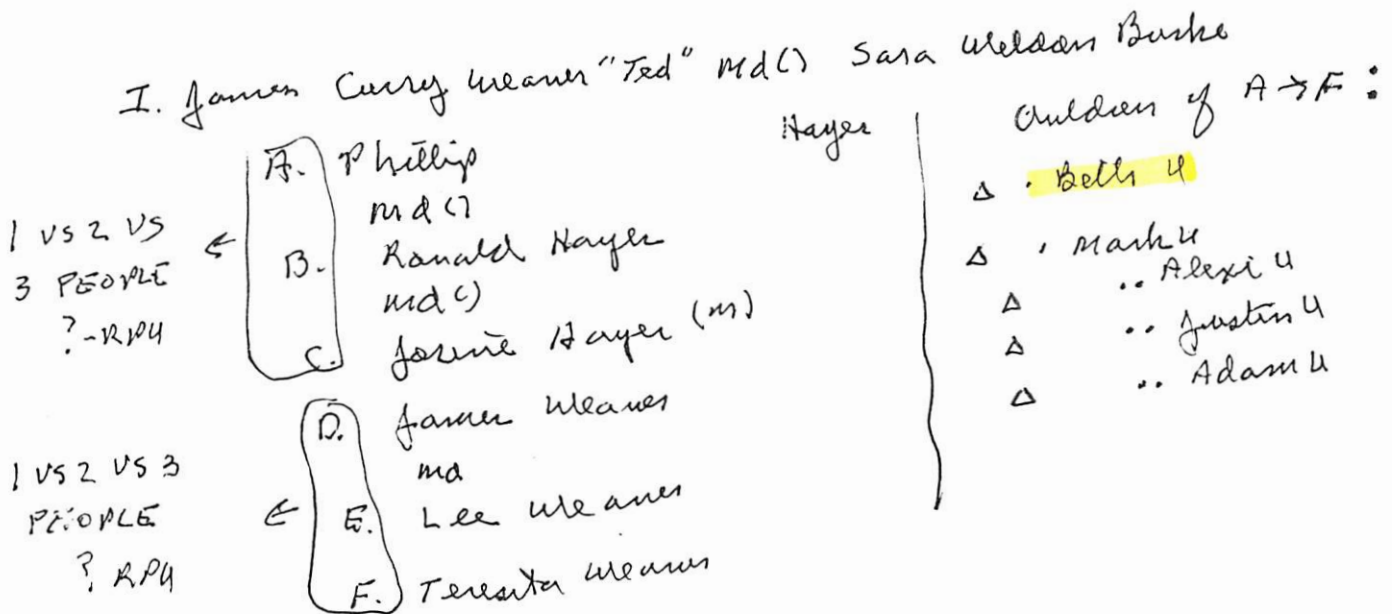 I. James Curry Weaver "Ted" md() Sara Weldon Burke
Hayer
A. Phillip
md()
B. Ronald Hayer
md()
C. Hayer (m)
D. James Weaver
md
E. Lee Weaver
F. Teresita Weaver
1 VS 2 VS
3 PEOPLE
? -RPW
1 VS 2 VS 3
PEOPLE
? RPW
Children of A → F :
Δ · Beth W
Δ · Mark W
Δ ·· Alexi W
Δ ·· Justin W
Δ ·· Adam W